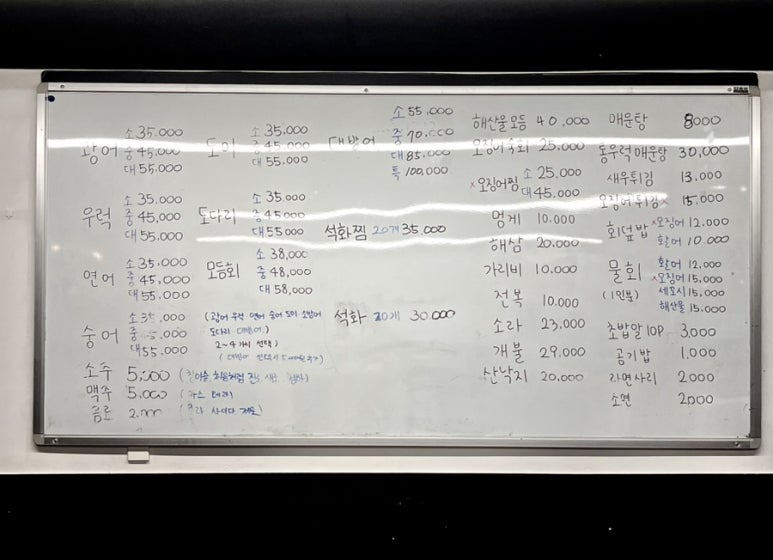 광어
소 35.000
중 45.000
대 55.000
우럭
소 35.000
중 45,000
대 55.000
연어
소 35.000
중 45,000
대 55.000
숭어
소 35.000
중
대 55.000
소주 5.000
맥주 5.000
음료
도미
소 35.000
중 45.000
대 55.000
도다리
소 35.000
중 45000
대 55000
모듬회
소 38,000
중 48,000
대 58,000
(광어 우럭 연어 숭어 도미
도다리 대방어)
2~4가지 선택)
대방어
소 55.000
중 70.000
대 85.000
특 100,000
석화찜 20개 35.000
석화 20개 30.000
해산물모듬 40.000
오징어숙회 25.000
x오징어찜 소 25.000
대 45.000
멍게 10.000
해삼 20.000
가리비 10.000
전복 10.000
소라 23.000
개불 29.000
산낙지 20.000
매운탕 8000
통우럭매운탕 30,000
새우튀김 13.000
오징어튀김x 15.000
회덮밥 x오징어 12.000
활어 10.000
물회
(1인분)
활어 12,000
x오징어 15,000
세꼬시 15,000
해산물 15,000
초밥알 10P 3,000
공기밥 1.000
라면사리 2000
소면 2000